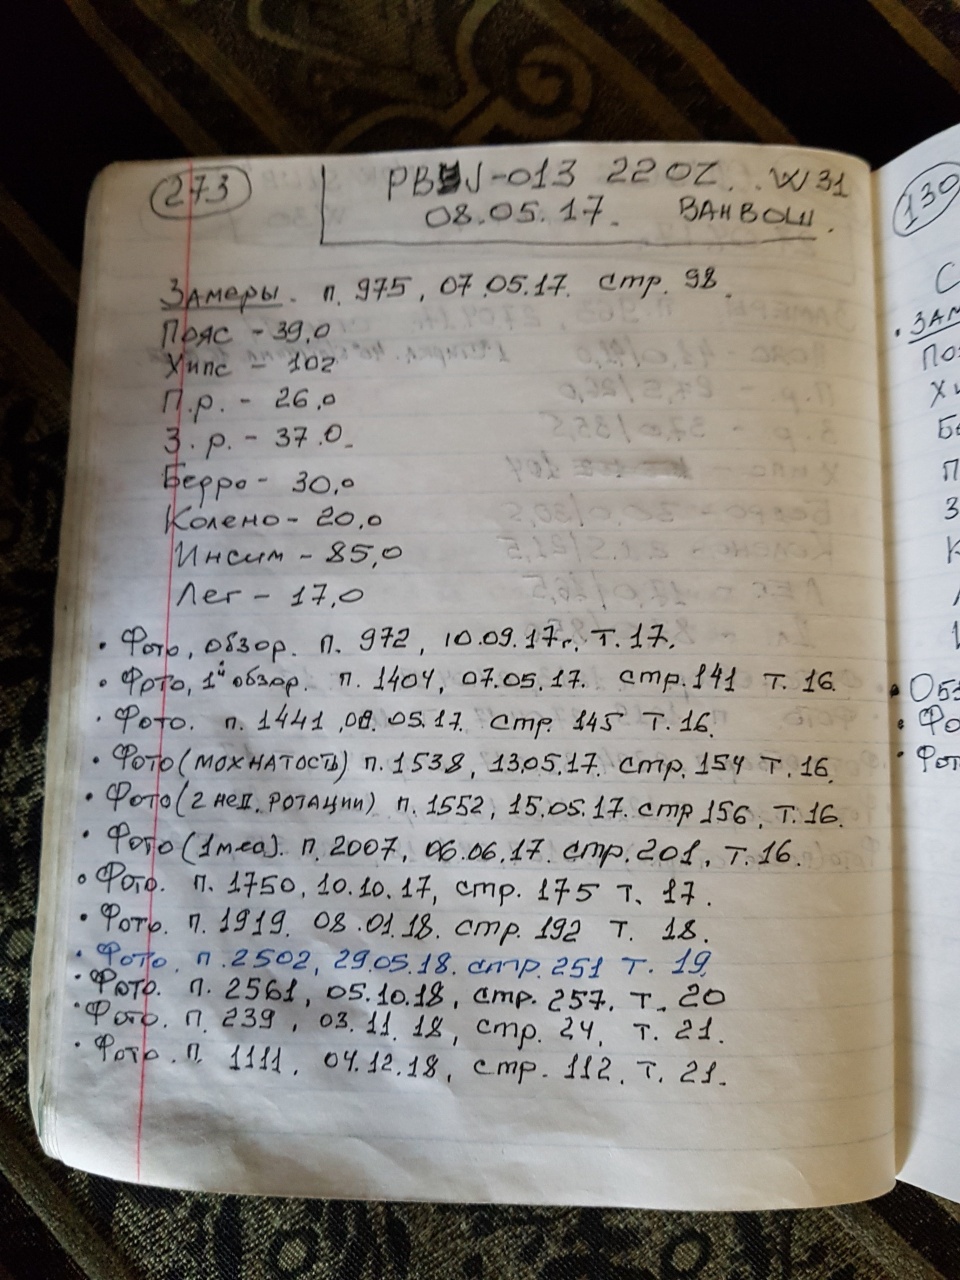 273
PBJ-013 22OZ. W31
08.05.17. ВАНВОШ.
Замеры. п. 975, 07.05.17. стр. 98.
Пояс - 39,0
Хипс - 102
П.р. - 26,0
З.р. - 37.0.
Бедро - 30,0
Колено - 20,0
Инсим - 85,0
Лег - 17,0
• Фото, обзор. п. 972, 10.09.17г. Т. 17.
• Фото, 1й обзор. п. 1404, 07.05.17. стр. 141 Т. 16.
• Фото. п. 1441, 08.05.17. стр. 145 Т. 16.
• Фото (МОХНАТОСТЬ) п. 1538, 13.05.17. стр. 154 Т. 16.
• Фото (2 нед. РОТАЦИИ) п. 1552, 15.05.17. стр 156, Т. 16.
• Фото (1мес). п. 2007, 06.06.17. стр. 201, Т. 16.
• Фото. п. 1750, 10.10.17, стр. 175 Т. 17.
• Фото. п. 1919. 08.01.18. стр. 192 Т. 18.
• Фото. п. 2502, 29.05.18. стр. 251 Т. 19.
• Фото. п. 2561, 05.10.18, стр. 257. Т. 20
• Фото. п. 239, 03.11.18, стр. 24, Т. 21.
• Фото. п. 1111. 04.12.18, стр. 112. Т. 21.
130
С
• ЗАМ
По
Хи
Бе
П
З
К
• Обз
• Фо
• Фот